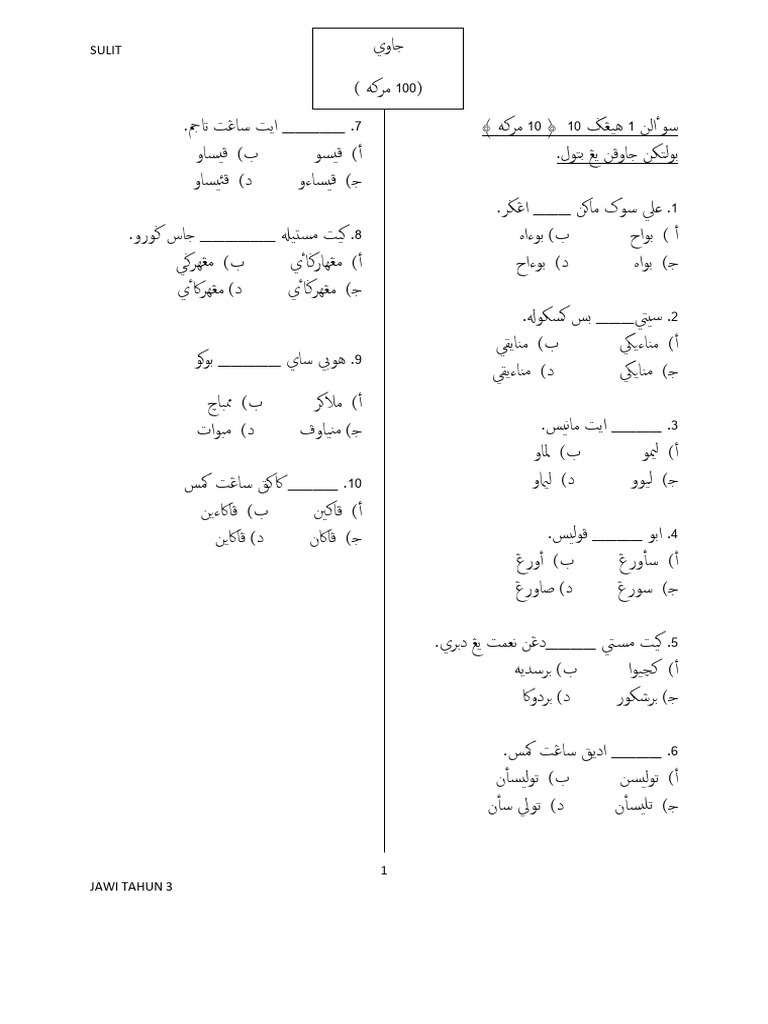 SULIT
جاوي
(100 مركه )
سوءالن 1 هيڠݢ 10 ﴿ 10 مركه ﴾
بولتكن جاوڤن يڠ بتول.
1. علي سوک ماكن _____ اڠݢر.
أ ) بواح ب) بوءاه
ج) بواه د) بوءاح
2. سيتي_____ بس كسكوله.
أ) مناءيكي ب) منايقي
ج) منايكي د) مناءيقي
3. _______ ايت مانيس.
أ) ليمو ب) لماو
ج) ليوو د) ليماو
4. ابو _______ ڤوليس.
أ) سأورڠ ب) أورڠ
ج) سورڠ د) صاورڠ
5. كيت مستي _______دڠن نعمت يڠ دبري.
أ) كچيوا ب) برسديه
ج) برشكور د) بردوكا
6. _______ اديق ساڠت كمس.
أ) توليسن ب) توليسأن
ج) تليسأن د) تولي سأن
7. _________ ايت ساڠت تاجم.
أ) ڤيسو ب) ڤيساو
ج) ڤيساءو د) ڤئيساو
8. كيت مستيله __________ جاس ݢورو.
أ) مڠهارݢاأي ب) مڠهرݢي
ج) مڠهرݢاأي د) مڠهركاأي
9. هوبي ساي _________ بوكو
أ) ملاكر ب) ممباچ
ج) منياوق د) مبوات
10. _______ كاكق ساڠت كمس
أ) ڤاكين ب) ڤاكاءين
ج) ڤاكان د) ڤاكاين
1
JAWI TAHUN 3